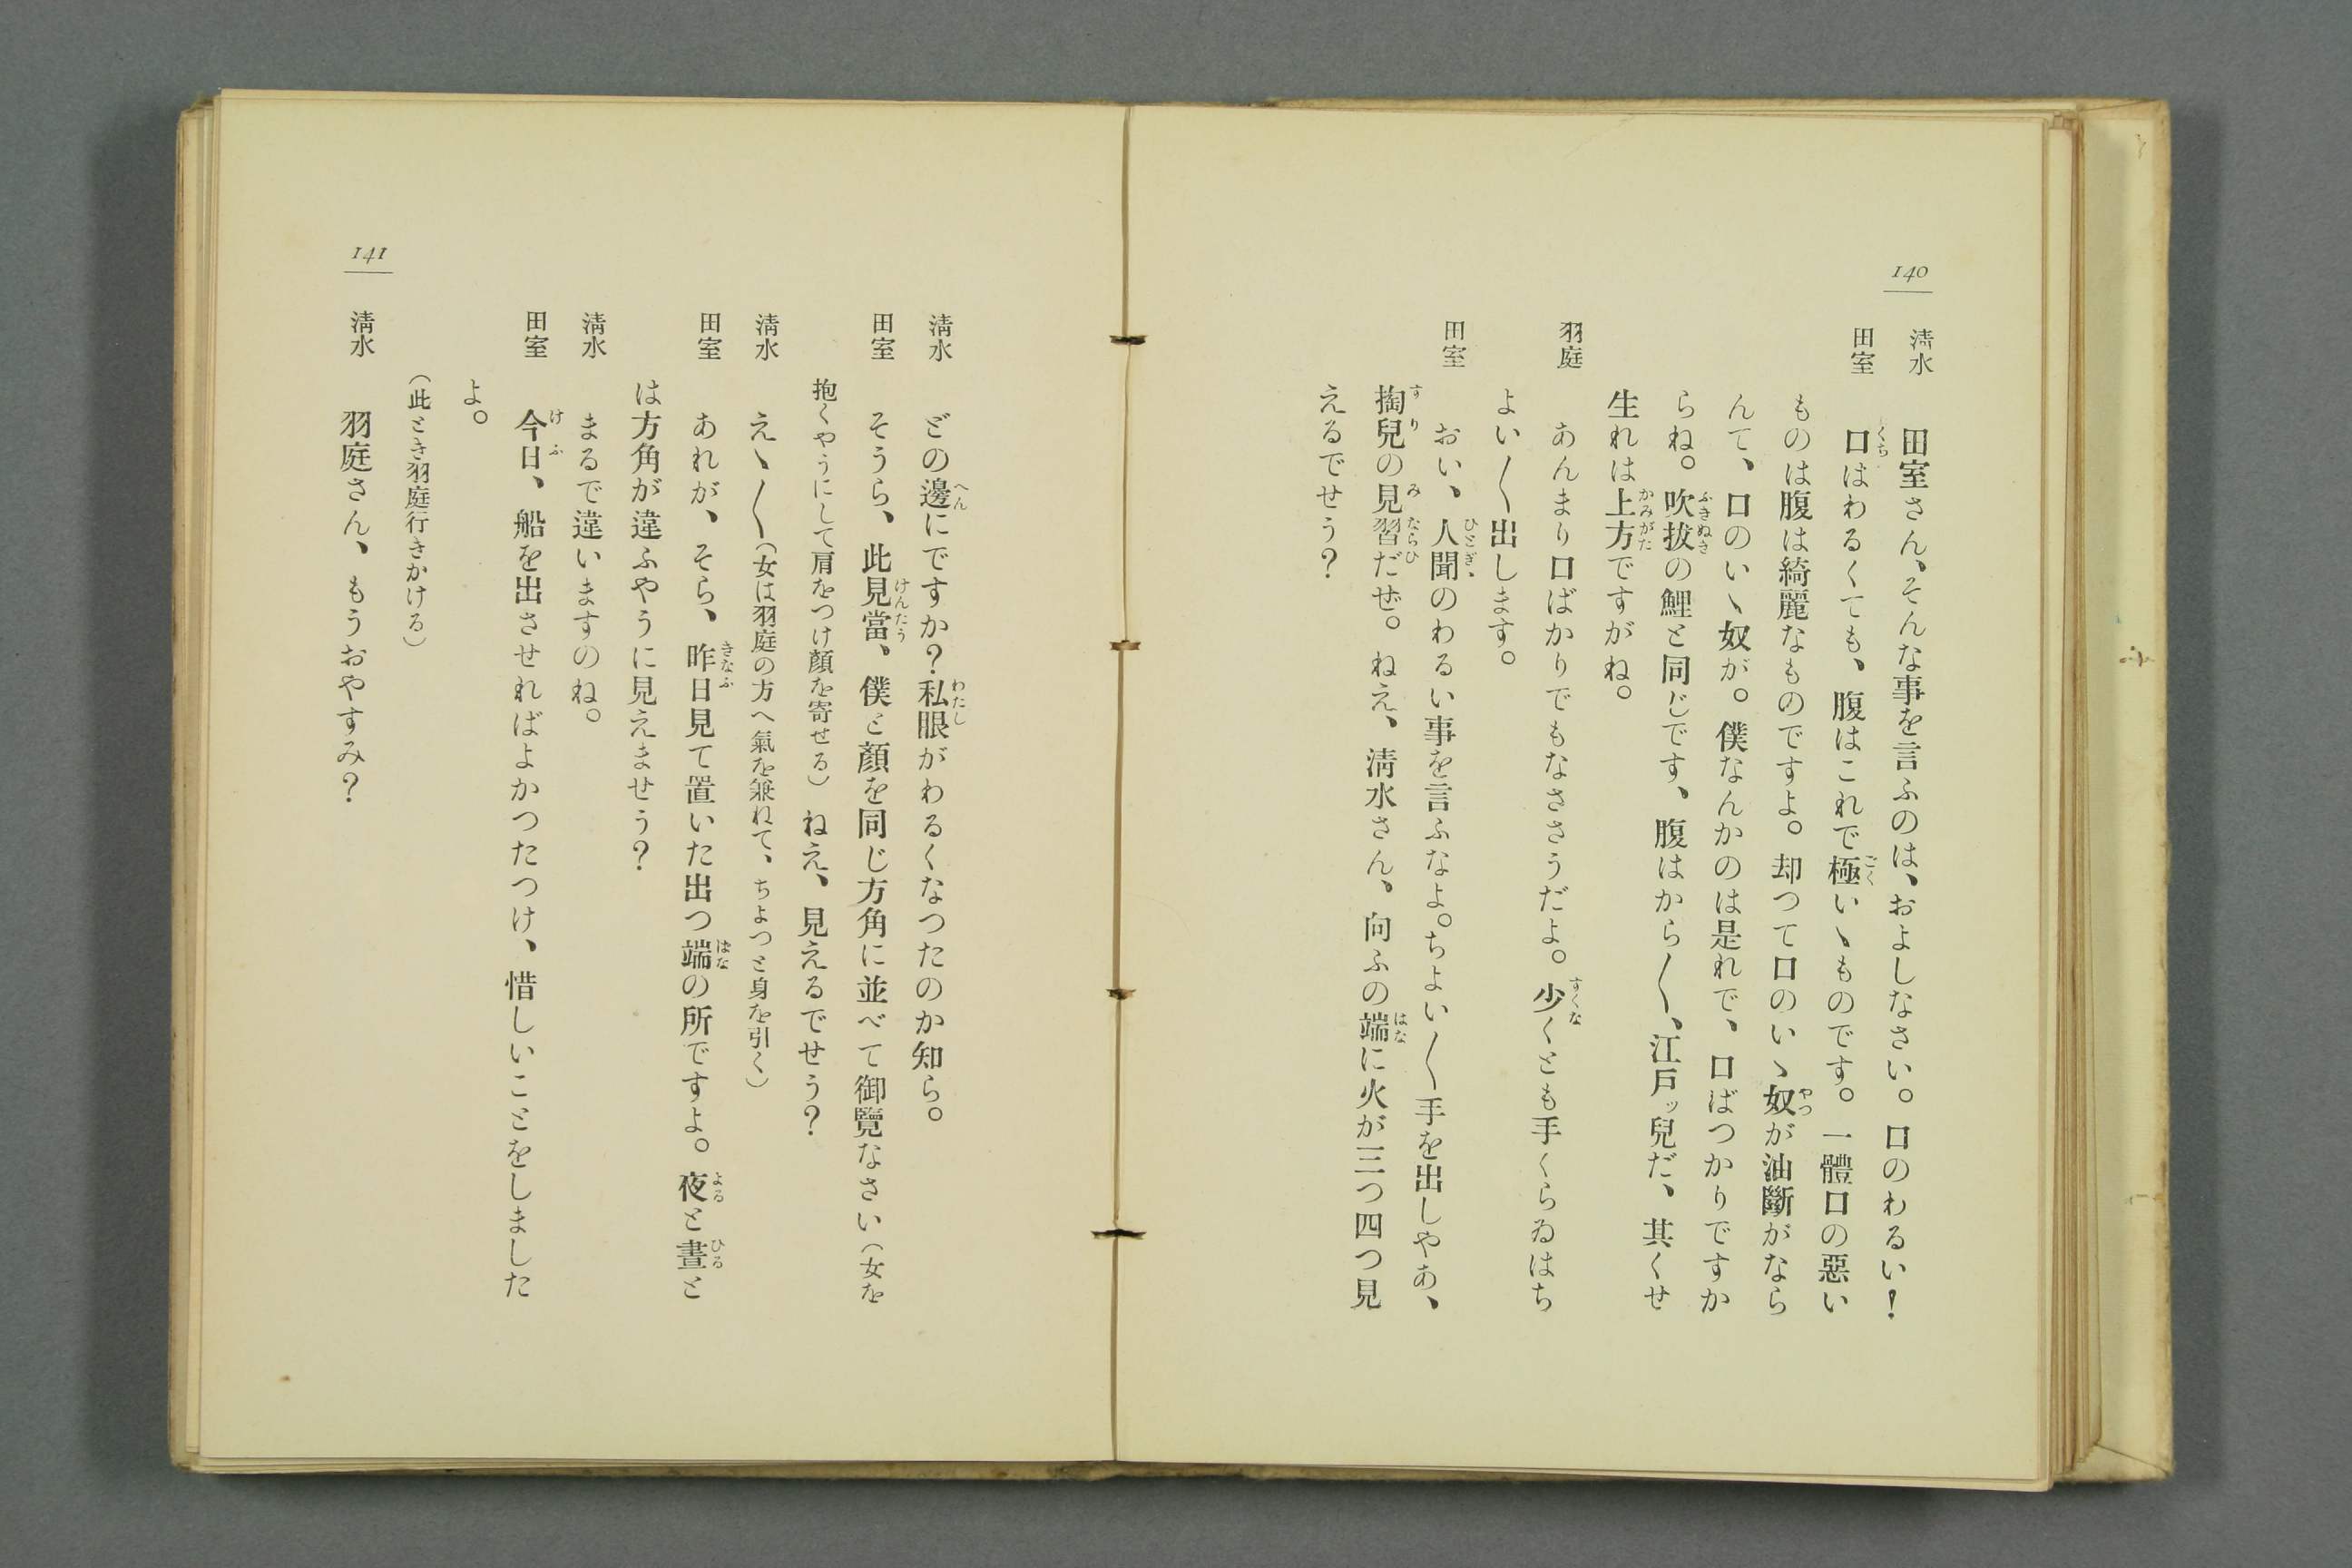 140
清水　田室さん、そんな事を言ふのは、およしなさい。口のわるい!
田室　口はわるくても、腹はこれで極いゝものです。一體口の惡い
ものは腹は綺麗なものですよ。却つて口のいゝ奴が油斷がなら
んて、口のいゝ奴が。僕なんかのは是れで、口ばつかりですか
らね。吹拔の鯉と同じです、腹はから〱、江戸ッ兒だ、其くせ
生れは上方ですがね。
羽庭　あんまり口ばかりでもなささうだよ。少くとも手くらゐはち
よい〱出します。
田室　おい、人聞のわるい事を言ふなよ。ちよい〱手を出しやあ、
掏兒の見習だぜ。ねえ、清水さん、向ふの端に火が三つ四つ見
えるでせう?
清水　どの邊にですか?私眼がわるくなつたのか知ら。
田室　そうら、此見當、僕と顏を同じ方角に並べて御覽なさい（女を
抱くやうにして肩をつけ顏を寄せる）ねえ、見えるでせう?
清水　えゝ〱（女は羽庭の方へ氣を兼ねて、ちよつと身を引く）
田室　あれが、そら、昨日見て置いた出つ端の所ですよ。夜と晝と
は方角が違ふやうに見えませう?
清水　まるで違いますのね。
田室　今日、船を出させればよかつたつけ、惜しいことをしました
よ。
（此とき羽庭行きかける）
清水　羽庭さん、もうおやすみ?
141